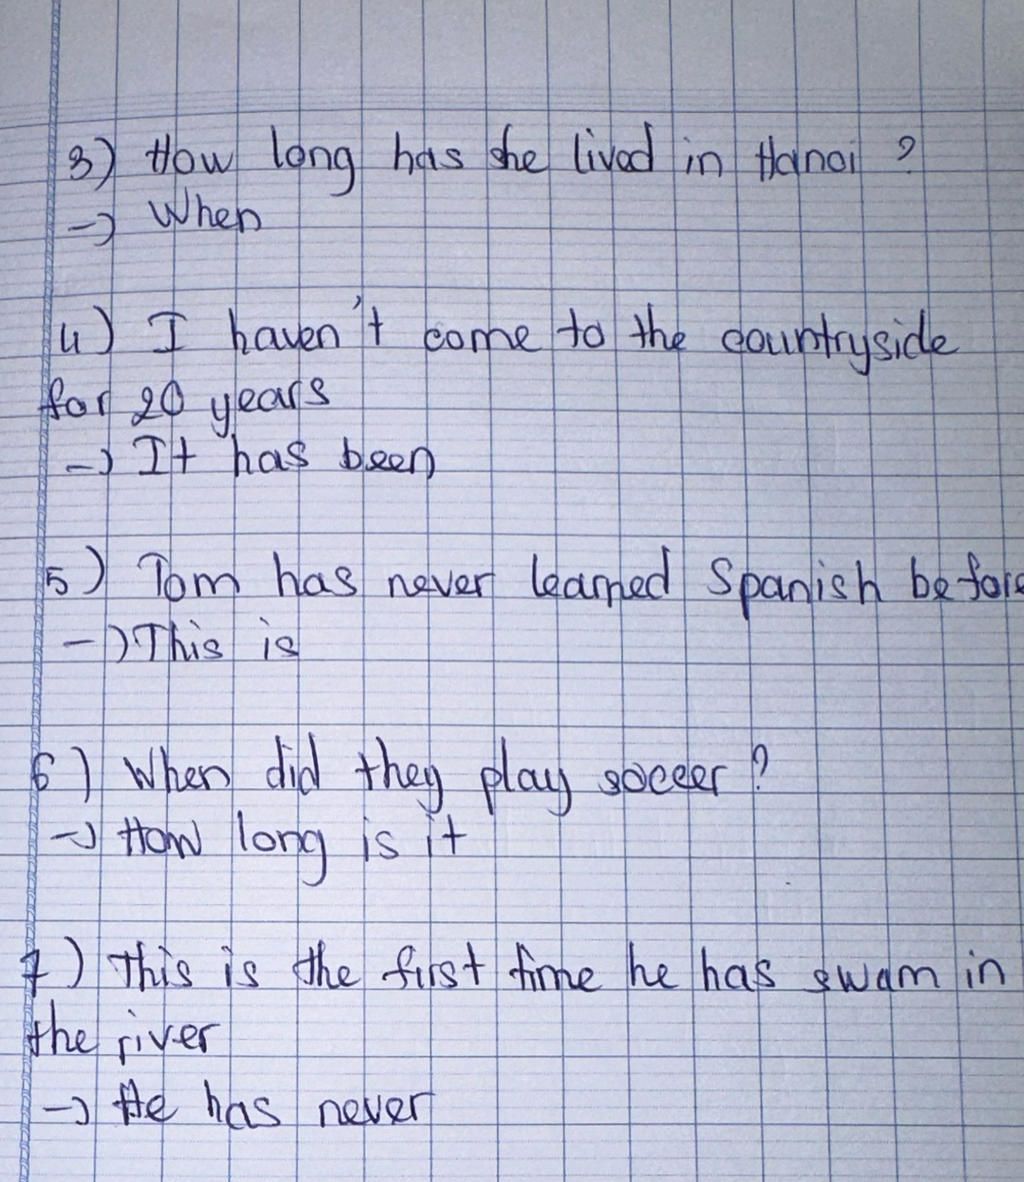 3) How long has she lived in Hanoi ?
-) When
4) I haven't come to the countryside
for 20 years
-) It has been
5) Tom has never learned Spanish before
-) This is
6) When did they play soccer ?
-) How long is it
7) This is the first time he has swam in
the river
-) He has never